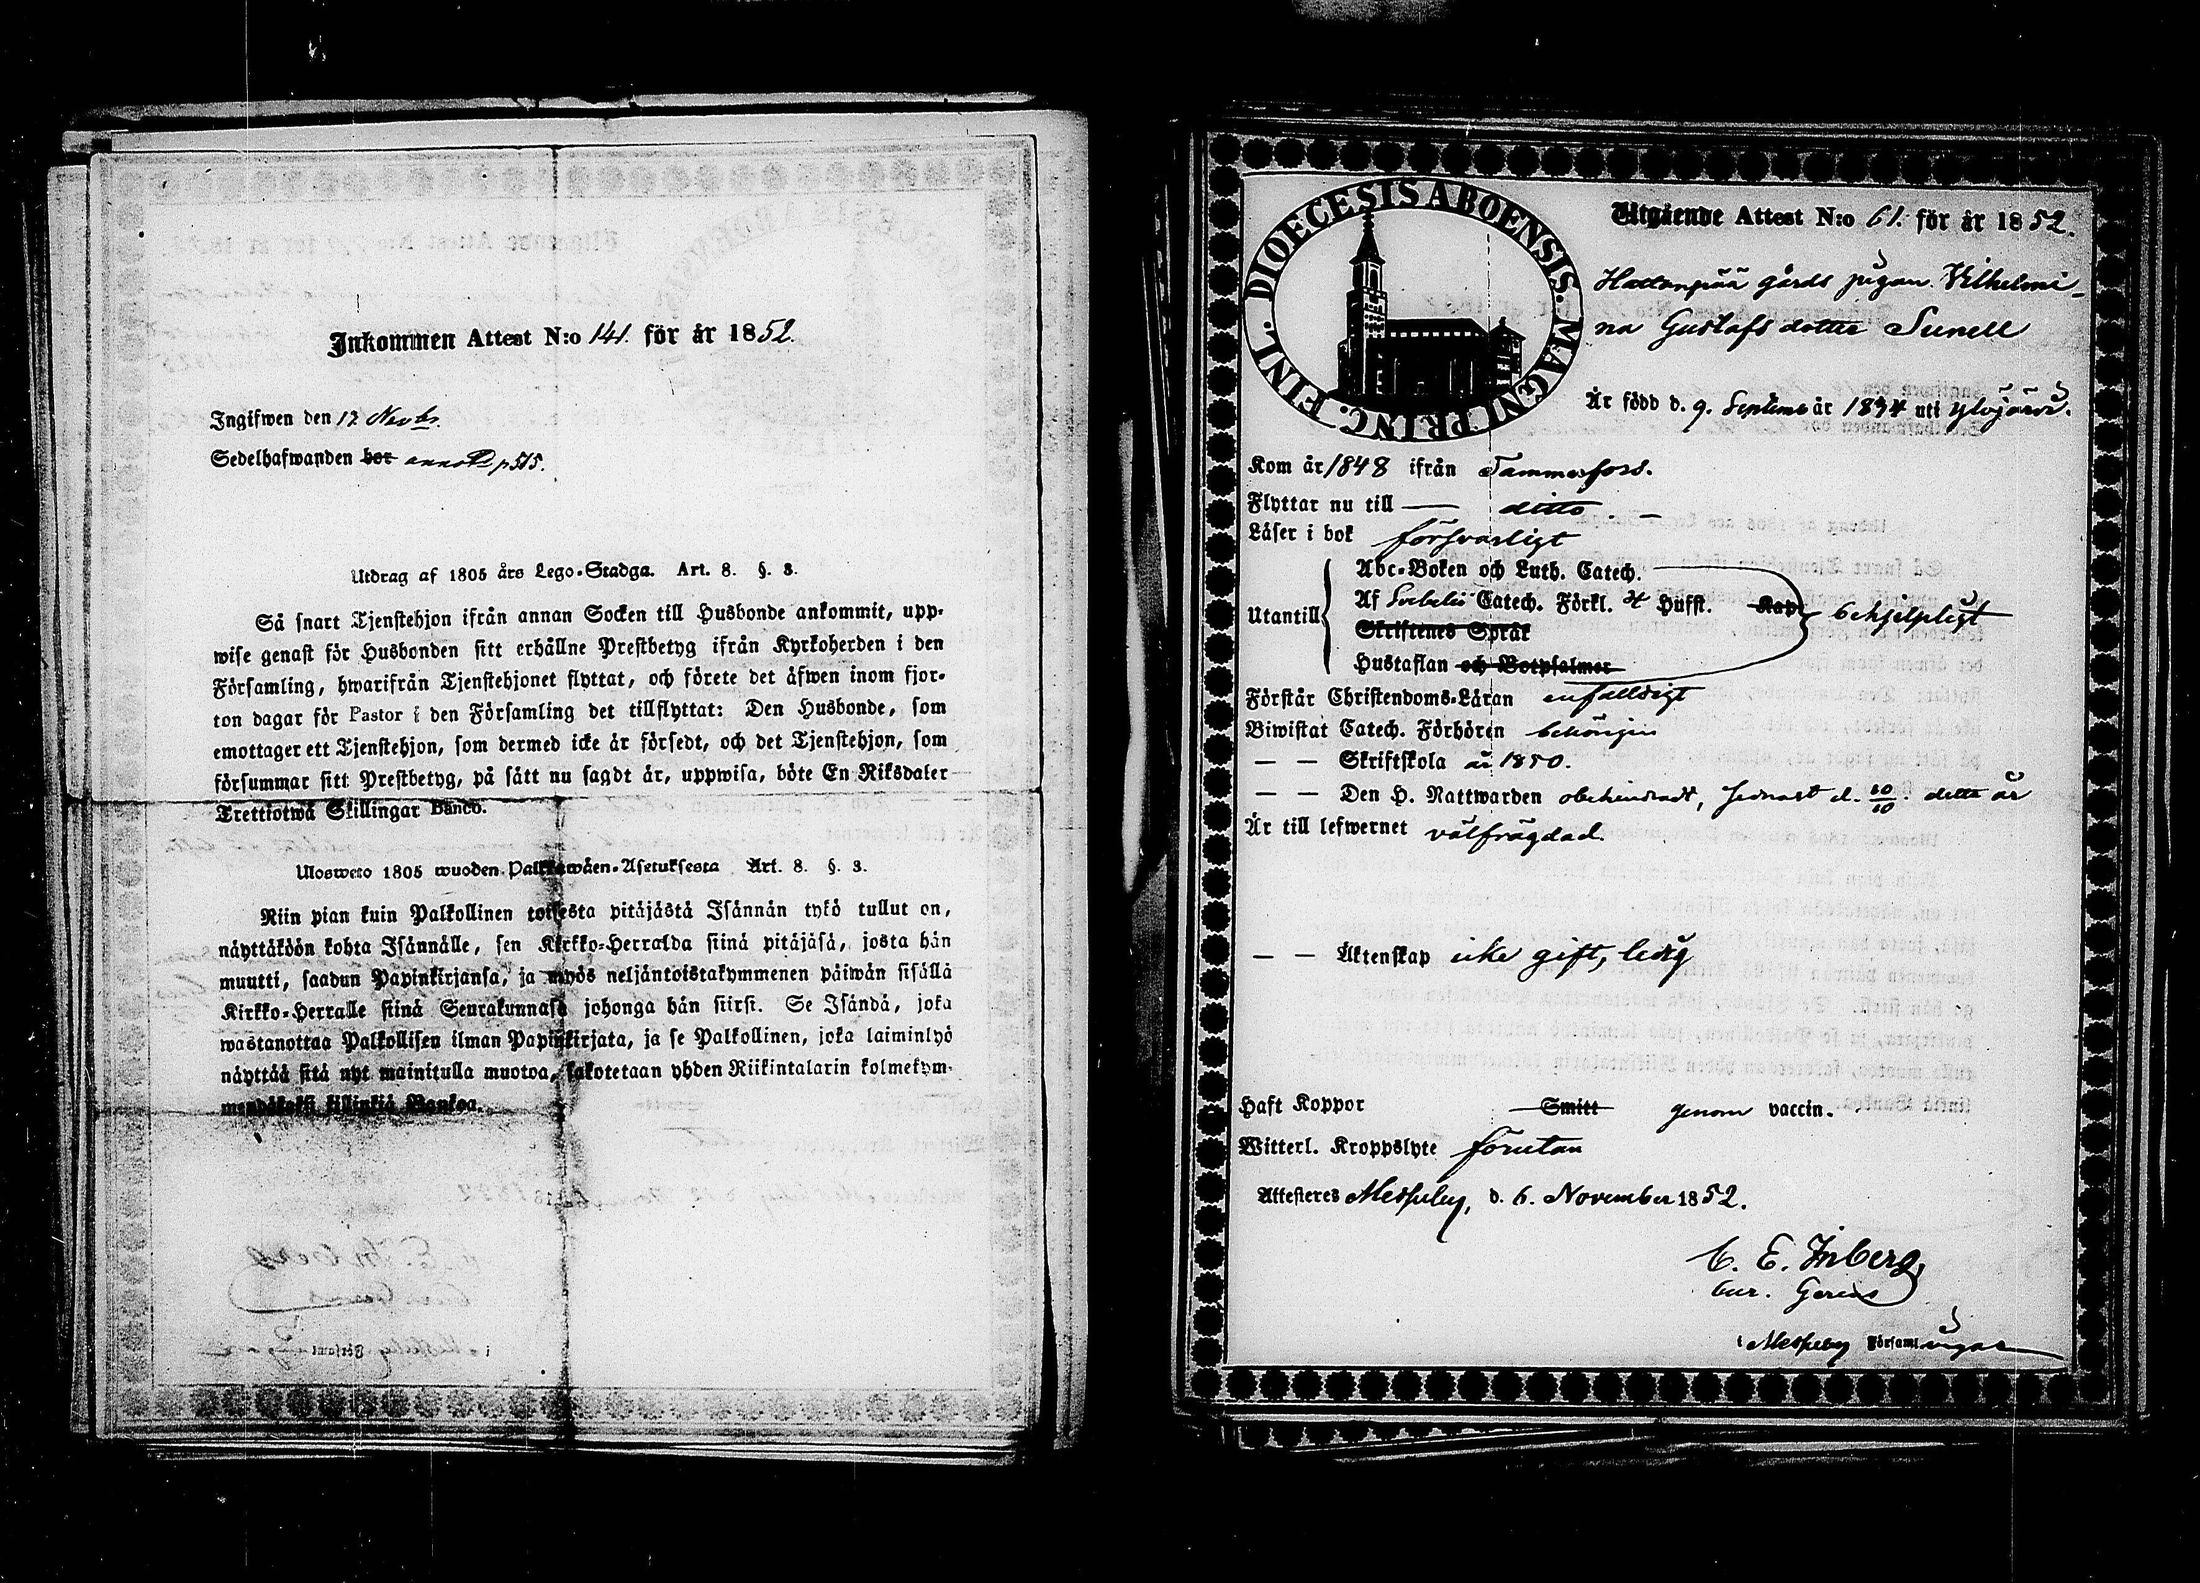 Inkommen Attest N:o 141. för år 1852.
Ingifwen den 17 Novbr.
Sedelhafwanden bor annot. p 515.
Utdrag af 1805 års Lego-Stadga. Art. 8. §. 3.
Så snart Tjenstehjon ifrån annan Socken till Husbonde ankommit, upp-
wise genast för Husbonden sitt erhållne Prestbetyg ifrån Kyrkoherden i den
Församling, hwarifrån Tjenstehjonet flyttat, och förete det äfwen inom fjor-
ton dagar för Pastor i den Församling det tillflyttat: Den Husbonde, som
emottager ett Tjenstehjon, som dermed icke är försedt, och det Tjenstehjon, som
försummar sitt Prestbetyg, på sätt nu sagdt är, uppwisa, böte En Riksdaler
Trettiotwå Skillingar Banco.
Ulosweto 1805 wuoden Palkkawäen-Asetuksesta Art. 8. §. 3.
Niin pian kuin Palkollinen toisesta pitäjästä Isännän tykö tullut on,
näyttäköön kohta Isännälle, sen Kirkko-Herralda siinä pitäjäsä, josta hän
muutti, saadun Papinkirjansa, ja myös neljäntoistakymmenen päiwän sisällä
Kirkko-Herralle siinä Seurakunnasa johonga hän siirsi. Se Isändä, joka
wastanottaa Palkollisen ilman Papinkirjata, ja se Palkollinen, joka laiminlyö
näyttää sitä nyt mainitulla muotoa, sakotetaan yhden Riikintalarin kolmekym-
mendäkaksi killinkiä Bankoa.
DIOECESIS ABOENSIS. MAGNI PRINC. FINL.
Utgående Attest N:o 61. för år 1852.
Hattanpää gårds pigan Vilhelmi-
na Gustafs dotter Sunell
Är född d. 9. Septemb år 1834 uti Ylöjärvi.
Kom år 1848 ifrån Tammerfors.
Flyttar nu till — ditto. —
Läser i bok försvarligt
Abc-Boken och Luth. Catech.
Utantill Af Svebelii Catech. Förkl. 4 Hufst. Kap. behjelpligt
Skriftenes Språk
Hustaflan och Botpsalmer
Förstår Christendoms-Läran enfalldigt
Biwistat Catech. Förhören behörigen
— — Skriftskola år 1850.
— — Den H. Nattwarden obehindradt, sednast d. 10/10. detta år
Är till lefwernet välfrägdad.
— — Äktenskap icke gift, ledig
Haft Koppor Smitt genom vaccin.
Witterl. Kroppslyte förutan
Attesteres Messuby, d. 6. November 1852.
C. E. Inberg,
Cur. Gerens
i Messuby Församlingar